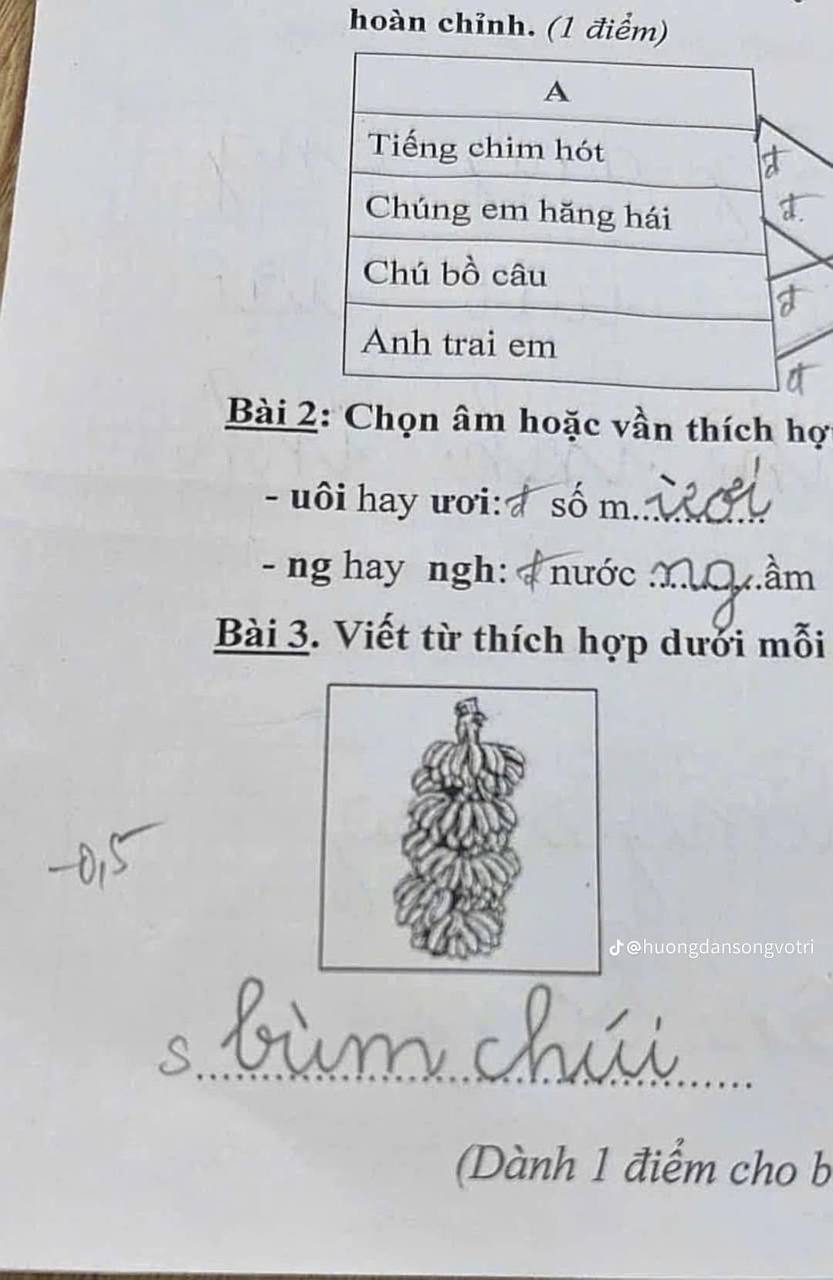 hoàn chỉnh. (1 điểm)
A
Tiếng chim hót
đ
Chúng em hăng hái
đ.
Chú bồ câu
đ
Anh trai em
đ
Bài 2: Chọn âm hoặc vần thích hợ
- uôi hay ươi: đ số m...ười...
- ng hay ngh: đ nước ...ng...ầm
Bài 3. Viết từ thích hợp dưới mỗi
-0,5
@huongdansongvotri
s bùm chúi
(Dành 1 điểm cho b